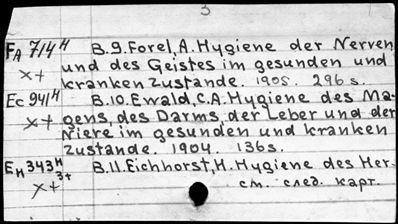 3
FA 714 H B.9. Forel, A. Hygiene der Nerven
x+ und des Geistes im gesunden und
kranken Zustande. 1905. 296 s.
Ec 941 H B.10. Ewald, C.A. Hygiene des Ma-
x+ gens, des Darms, der Leber und der
Niere im gesunden und kranken
Zustande. 1904. 136 s.
EH 343 H B.11. Eichhorst, H. Hygiene des Her-
3+
x+ см. след. карт.